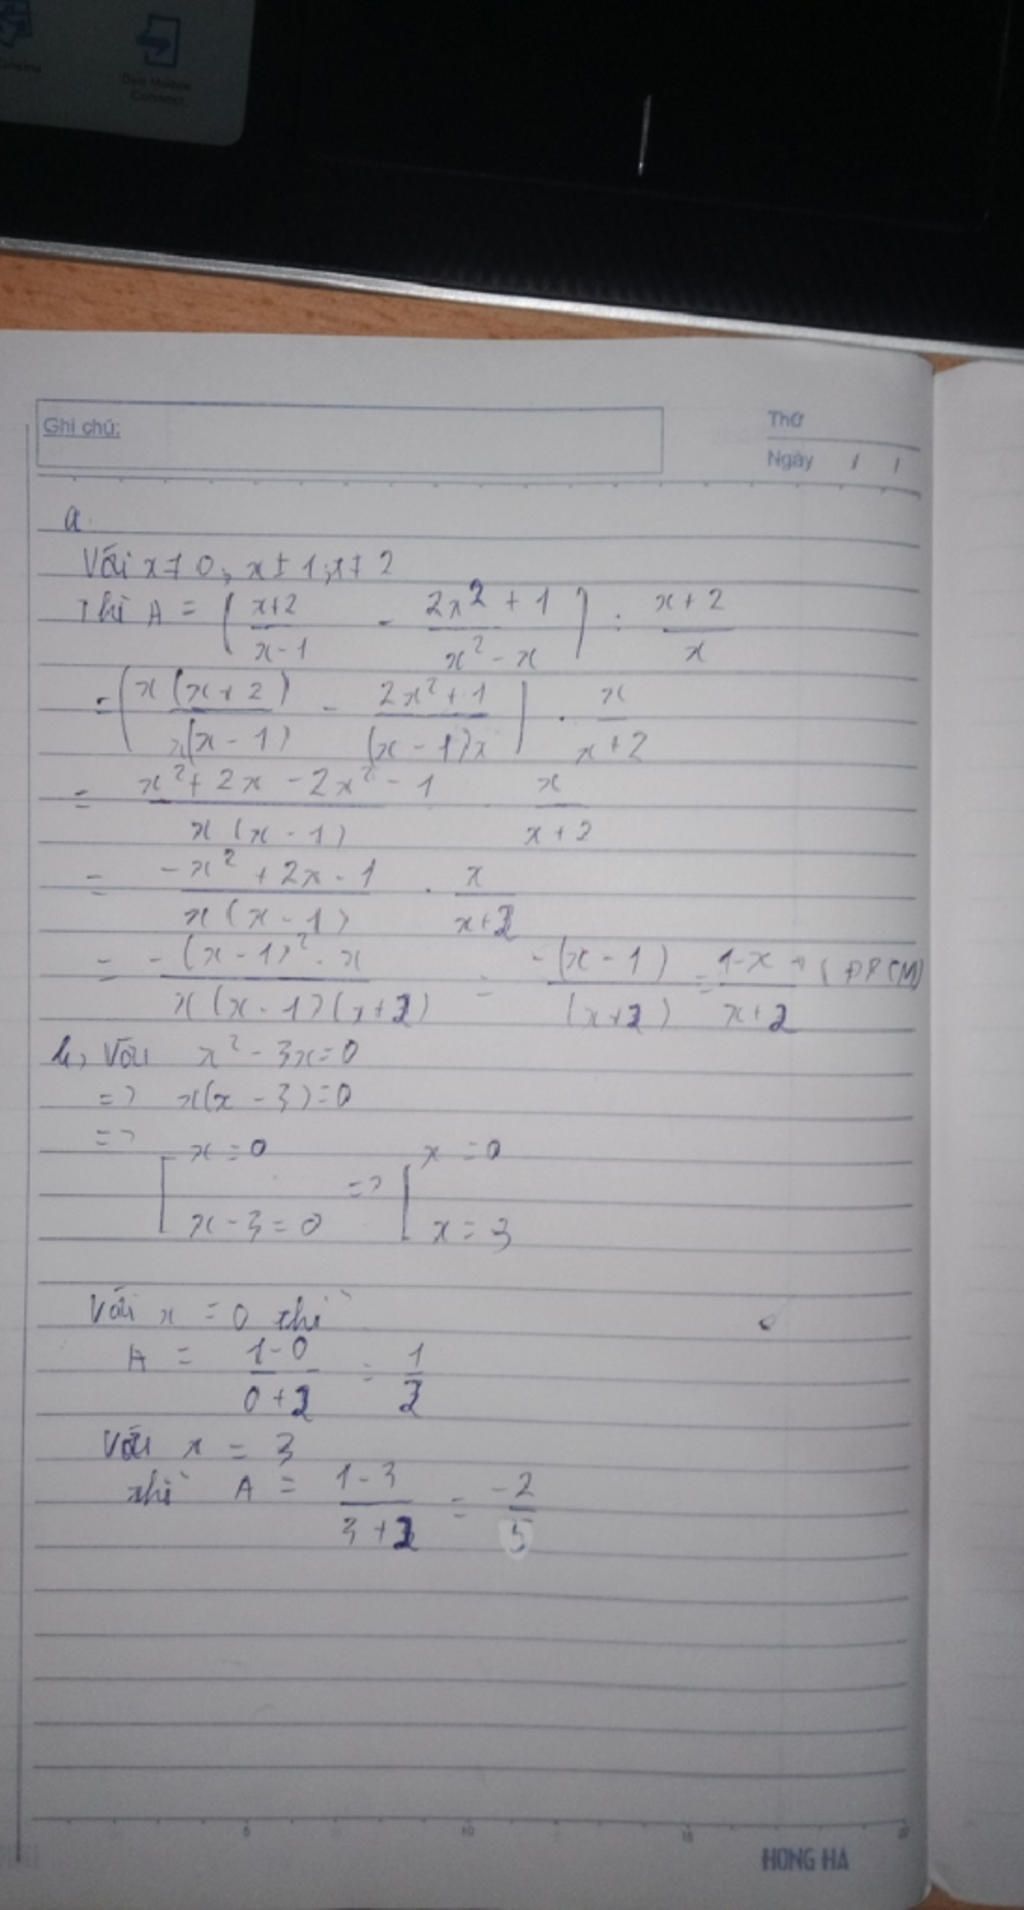 Data Mobile
Connect
Ghi chú:
Thứ
Ngày / /
a.
Với x ≠ 0; x ≠ 1; x ≠ 2
Thì A = ( (x+2)/(x-1) - (2x² + 1)/(x² - x) ) : (x+2)/x
= ( x(x+2)/(x(x-1)) - (2x²+1)/((x-1)x) ) . x/(x+2)
= (x² + 2x - 2x² - 1)/(x(x-1)) . x/(x+2)
= (-x² + 2x - 1)/(x(x-1)) . x/(x+2)
= (-(x-1)² . x)/(x(x-1)(x+2)) = (-(x-1))/((x+2)) = (1-x)/(x+2) → (ĐPCM)
b, Với x² - 3x = 0
=> x(x - 3) = 0
=>
[ x = 0 => [ x = 0
x - 3 = 0 x = 3
Với x = 0 thì
A = (1-0)/(0+2) = 1/2
Với x = 3
thì A = (1-3)/(3+2) = -2/5
5 10 15
HONG HA